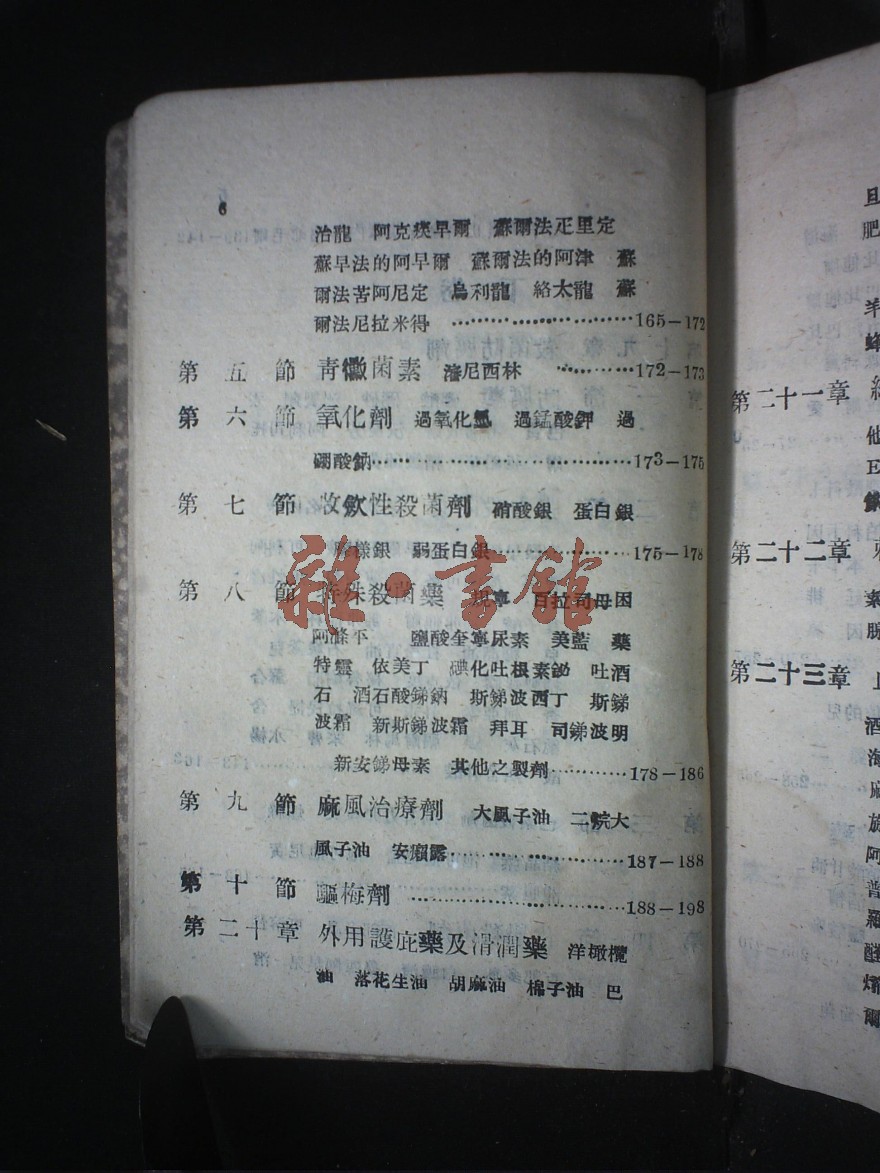 6
治龍 阿克痰早爾 蘇爾法疋里定
蘇早法的阿早爾 蘇爾法的阿津 蘇
爾法苦阿尼定 烏利龍 絡太龍 蘇
爾法尼拉米得 ………………………165—172
第五節 青黴菌素 潘尼西林 …………172—173
第六節 氧化劑 過氧化氫 過錳酸鉀 過
硼酸鈉………………………………173—175
第七節 收斂性殺菌劑 硝酸銀 蛋白銀
膠樣銀 弱蛋白銀………………175—178
第八節 特殊殺菌藥 規寧 百拉司母因
阿滌平 鹽酸奎寧尿素 美藍 藥
特靈 依美丁 碘化吐根素鉍 吐酒
石 酒石酸銻鈉 斯銻波西丁 斯銻
波霜 新斯銻波霜 拜耳 司銻波明
新安銻母素 其他之製劑…………178—186
第九節 麻風治療劑 大風子油 二烷大
風子油 安癩露………………………187—188
第十節 驅梅劑 ………………………188—198
第二十章 外用護庇藥及滑潤藥 洋橄欖
油 落花生油 胡麻油 棉子油 巴
雜·書館
肥
羊
蜂
第二十一章
他
第二十二章
素
第二十三章
酒
海
麻
阿
普
羅
醛
爾